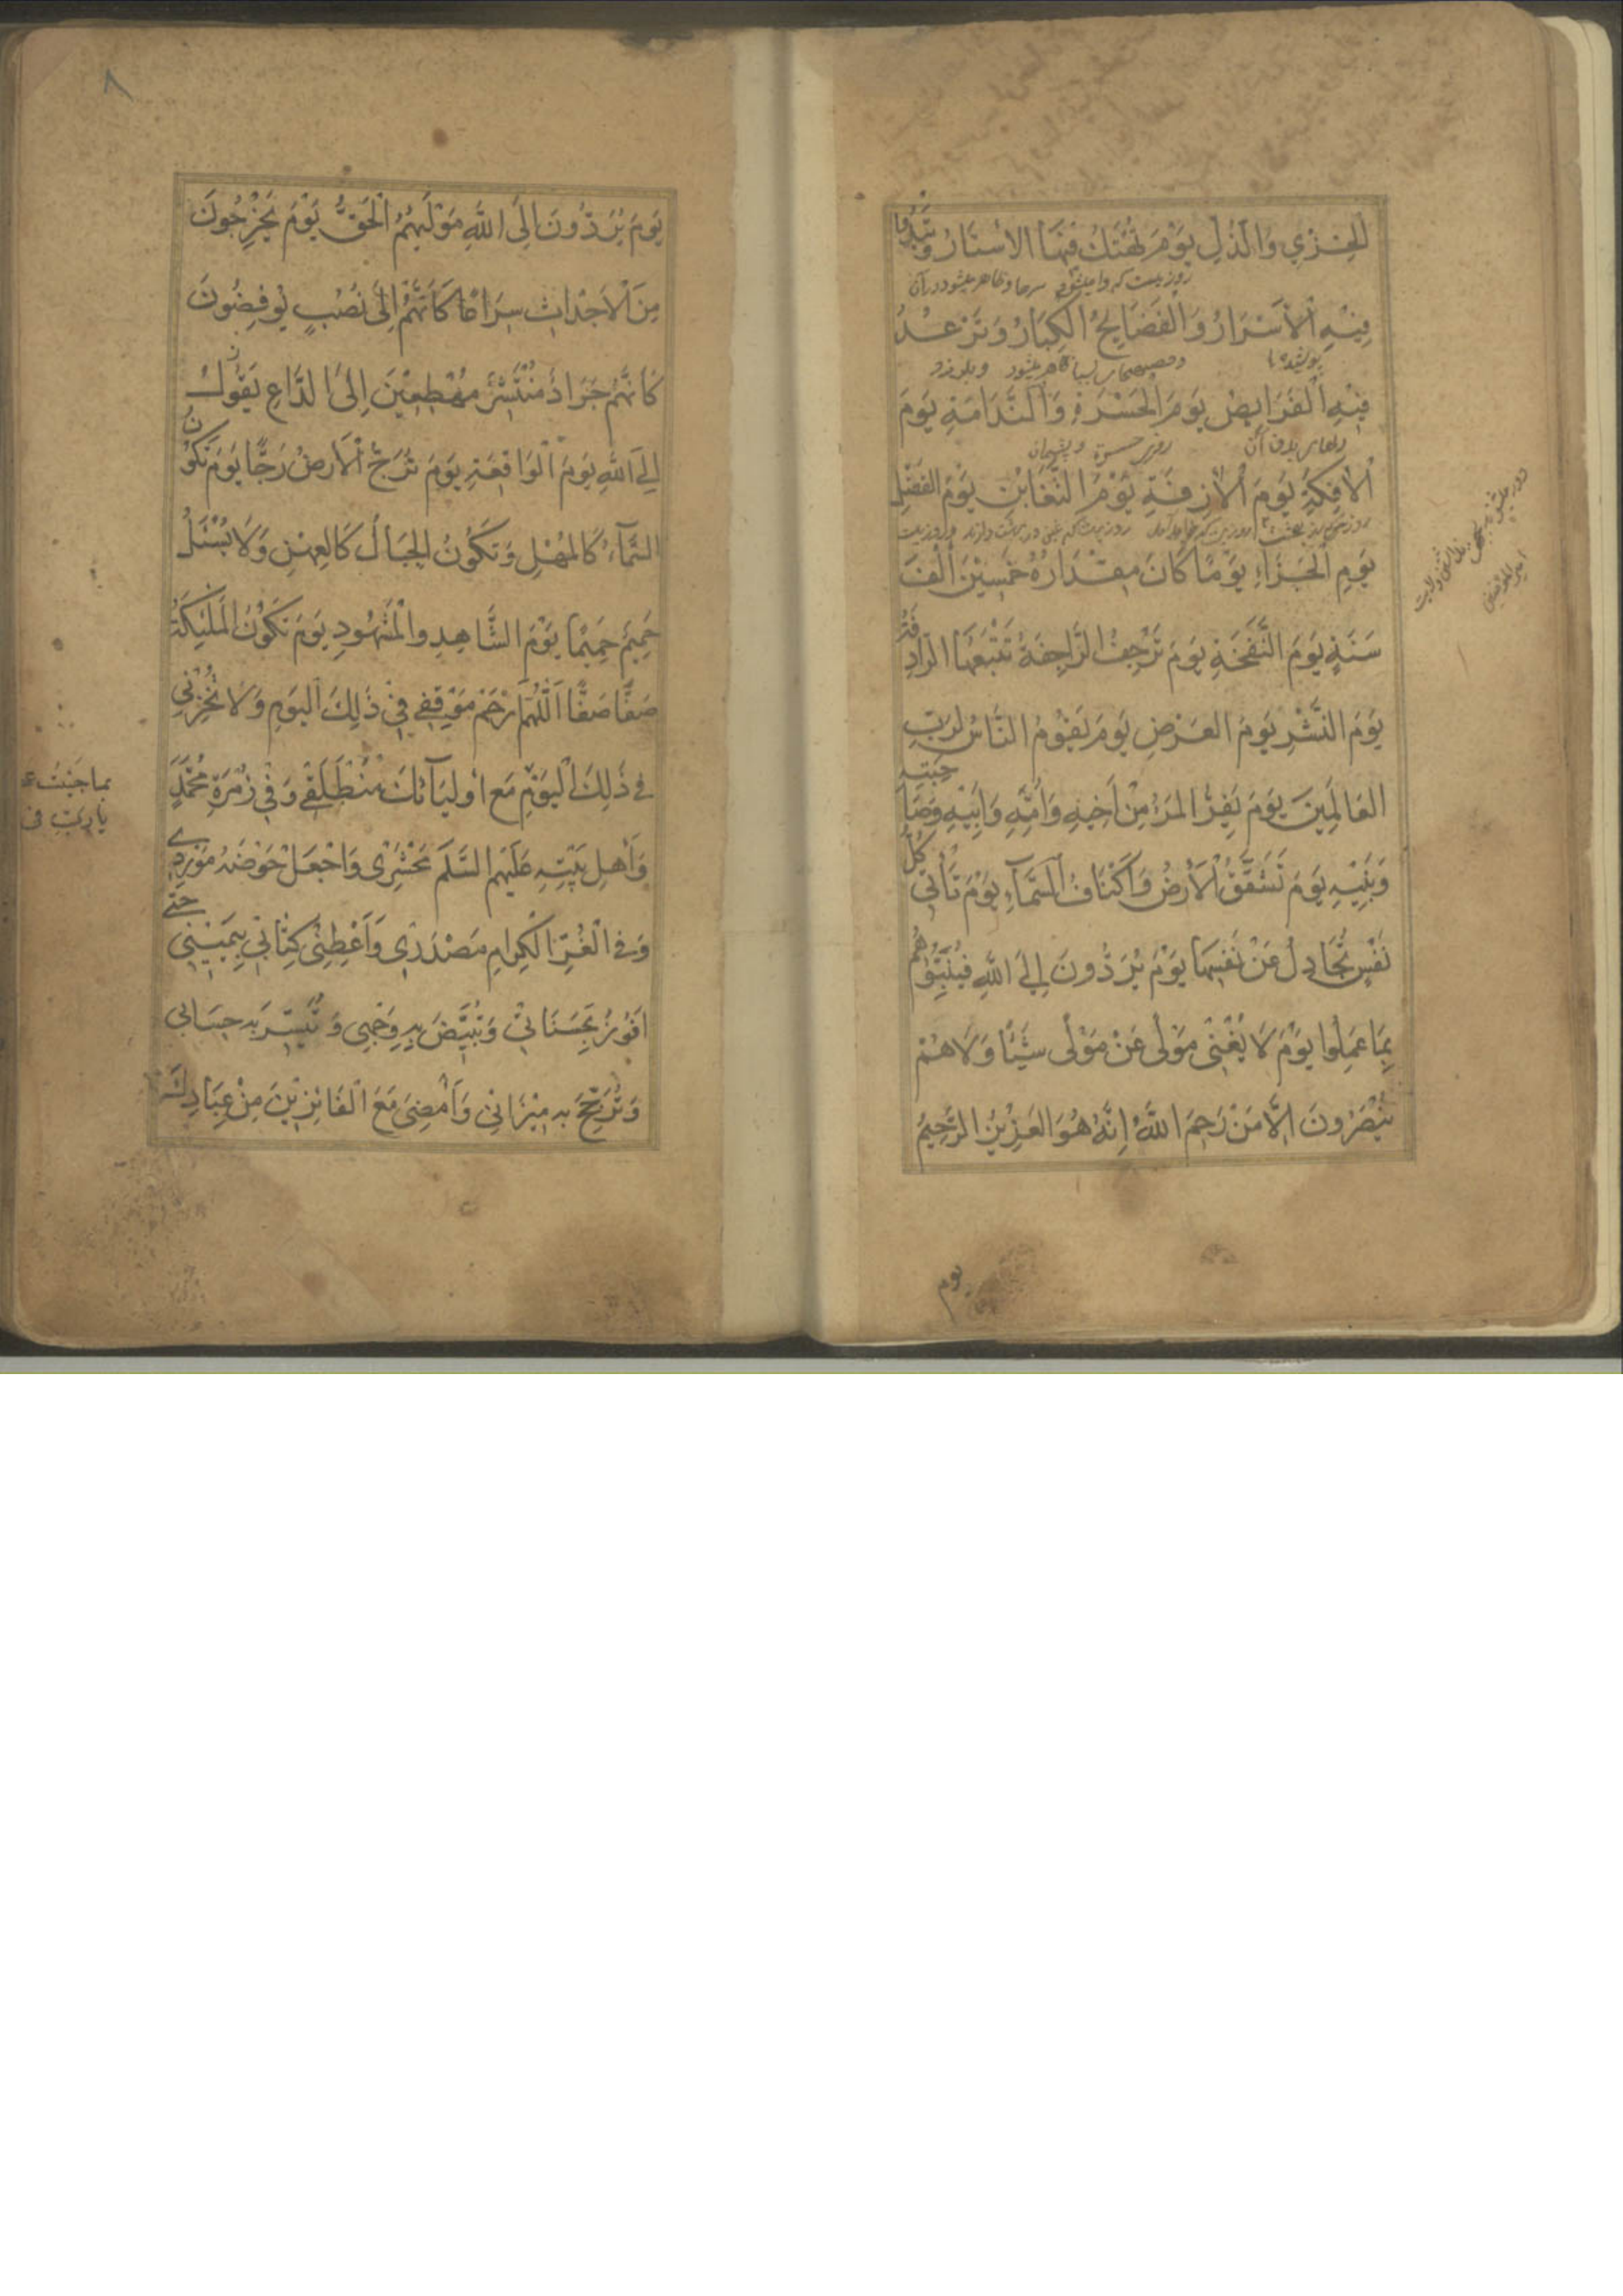 الخِزْيِ وَالذُّلِ يَوْمَ تُهْتَكُ فِيهَا الاَسْتَارُ وَتَبْدُوا
روزیست که وا میشود سرها و ظاهر میشود در آن
فِيْهِ الْاَسْرَارُ وَالْفَضَايِحُ الْكِبَارُ وَتَرْعُدُ
ظاهر میشود و بلرزد
فِيْهِ الْفَرَايِصُ يَوْمَ الْحَسْرَةِ وَالنَّدَامَةِ يَوْمَ
روز حسرة و پشیمان
الْاٰفِكَةِ يَوْمَ الْاٰزِفَةِ يَوْمَ التَّغَابُنِ يَوْمَ الفَصْلِ
يَوْمِ الْجَزَاءِ يَوْمًا كَانَ مِقْدَارُهُ خَمْسِيْنَ اَلْفَ
سَنَةٍ يَوْمَ النَّفْخَةِ يَوْمَ تَرْجُفُ الرَّاجِفَةُ تَتْبَعُهَا الرَّادِفَةُ
يَوْمَ النَّشْرِ يَوْمَ العَرْضِ يَوْمَ يَقُوْمُ النَّاسُ لِرَبِّ
العَالَمِينَ يَوْمَ يَفِرُّ المَرْءُ مِنْ اَخِيْهِ وَاُمِّهِ وَاَبِيْهِ وَصَاحِبَتِهِ
وَبَنِيْهِ يَوْمَ تَشَقَّقُ الْاَرْضُ وَاَكْنَافُ السَّمَآءِ يَوْمَ تَأْتِي كُلُّ
نَفْسٍ تُجَادِلُ عَنْ نَفْسِهَا يَوْمَ يُرَدُّونَ اِلَى اللهِ فَيُنَبِّئُهُمْ
بِمَا عَمِلُوا يَوْمَ لَا يُغْنِى مَوْلًى عَنْ مَوْلًى شَيْئًا وَلَا هُمْ
يُنْصَرُونَ اِلَّا مَنْ رَحِمَ اللهُ اِنَّهُ هُوَ العَزِيْزُ الرَّحِيمُ
يوم
٨
يَوْمَ يُرَدُّونَ اِلَى اللهِ مَوْلٰيهُمُ الْحَقُّ يَوْمَ يَخْرُجُونَ
مِنَ الْاَجْدَاثِ سِرَاعًا كَاَنَّهُمْ اِلَى نُصُبٍ يُوْفِضُونَ
كَاَنَّهُمْ جَرَادٌ مُنْتَشِرٌ مُهْطِعِيْنَ اِلَى الدَّاعِ
اِلَى اللهِ يَوْمَ الْوَاقِعَةِ يَوْمَ تُرَجُّ الْاَرْضُ رَجًّا يَوْمَ تَكُوْنُ
السَّمَآءُ كَالْمُهْلِ وَتَكُوْنُ الجِبَالُ كَالعِهْنِ وَلَا يُسْئَلُ
حَمِيْمٌ حَمِيْمًا يَوْمَ الشَّاهِدِ وَالْمَشْهُودِ يَوْمَ تَكُوْنُ الْمَلٰئِكَةُ
صَفًّا صَفًّا اَللّٰهُمَّ ارْحَمْ مَوْقِفِي فِيْ ذٰلِكَ الْيَوْمِ وَلَا تُخْزِنِي
فِي ذٰلِكَ الْيَوْمِ مَعَ اَوْلِيَآئِكَ مُنْطَلَقِي وَفِيْ زُمْرَةِ مُحَمَّدٍ
بما جنيت ع
يا رب فى
وَاَهْلِ بَيْتِهِ عَلَيْهِمُ السَّلَمُ مَحْشَرِى وَاجْعَلْ حَوْضَهُ مَوْرِدِي
وَفِي الْغُرِّ الْكِرَامِ مَصْدَرِي وَاَعْطِنِى كِتَابِي بِيَمِيْنِي حَتّٰى
اَفُوْزُ بِحَسَنَاتِيْ وَتُبَيِّضَ بِهِ وَجْهِي وَتُيَسِّرَ بِهِ حِسَابِي
وَتُرَجِّحَ بِهِ مِيْزَانِيْ وَاَمْضِىَ مَعَ الْفَائِزِيْنَ مِنْ عِبَادِكَ